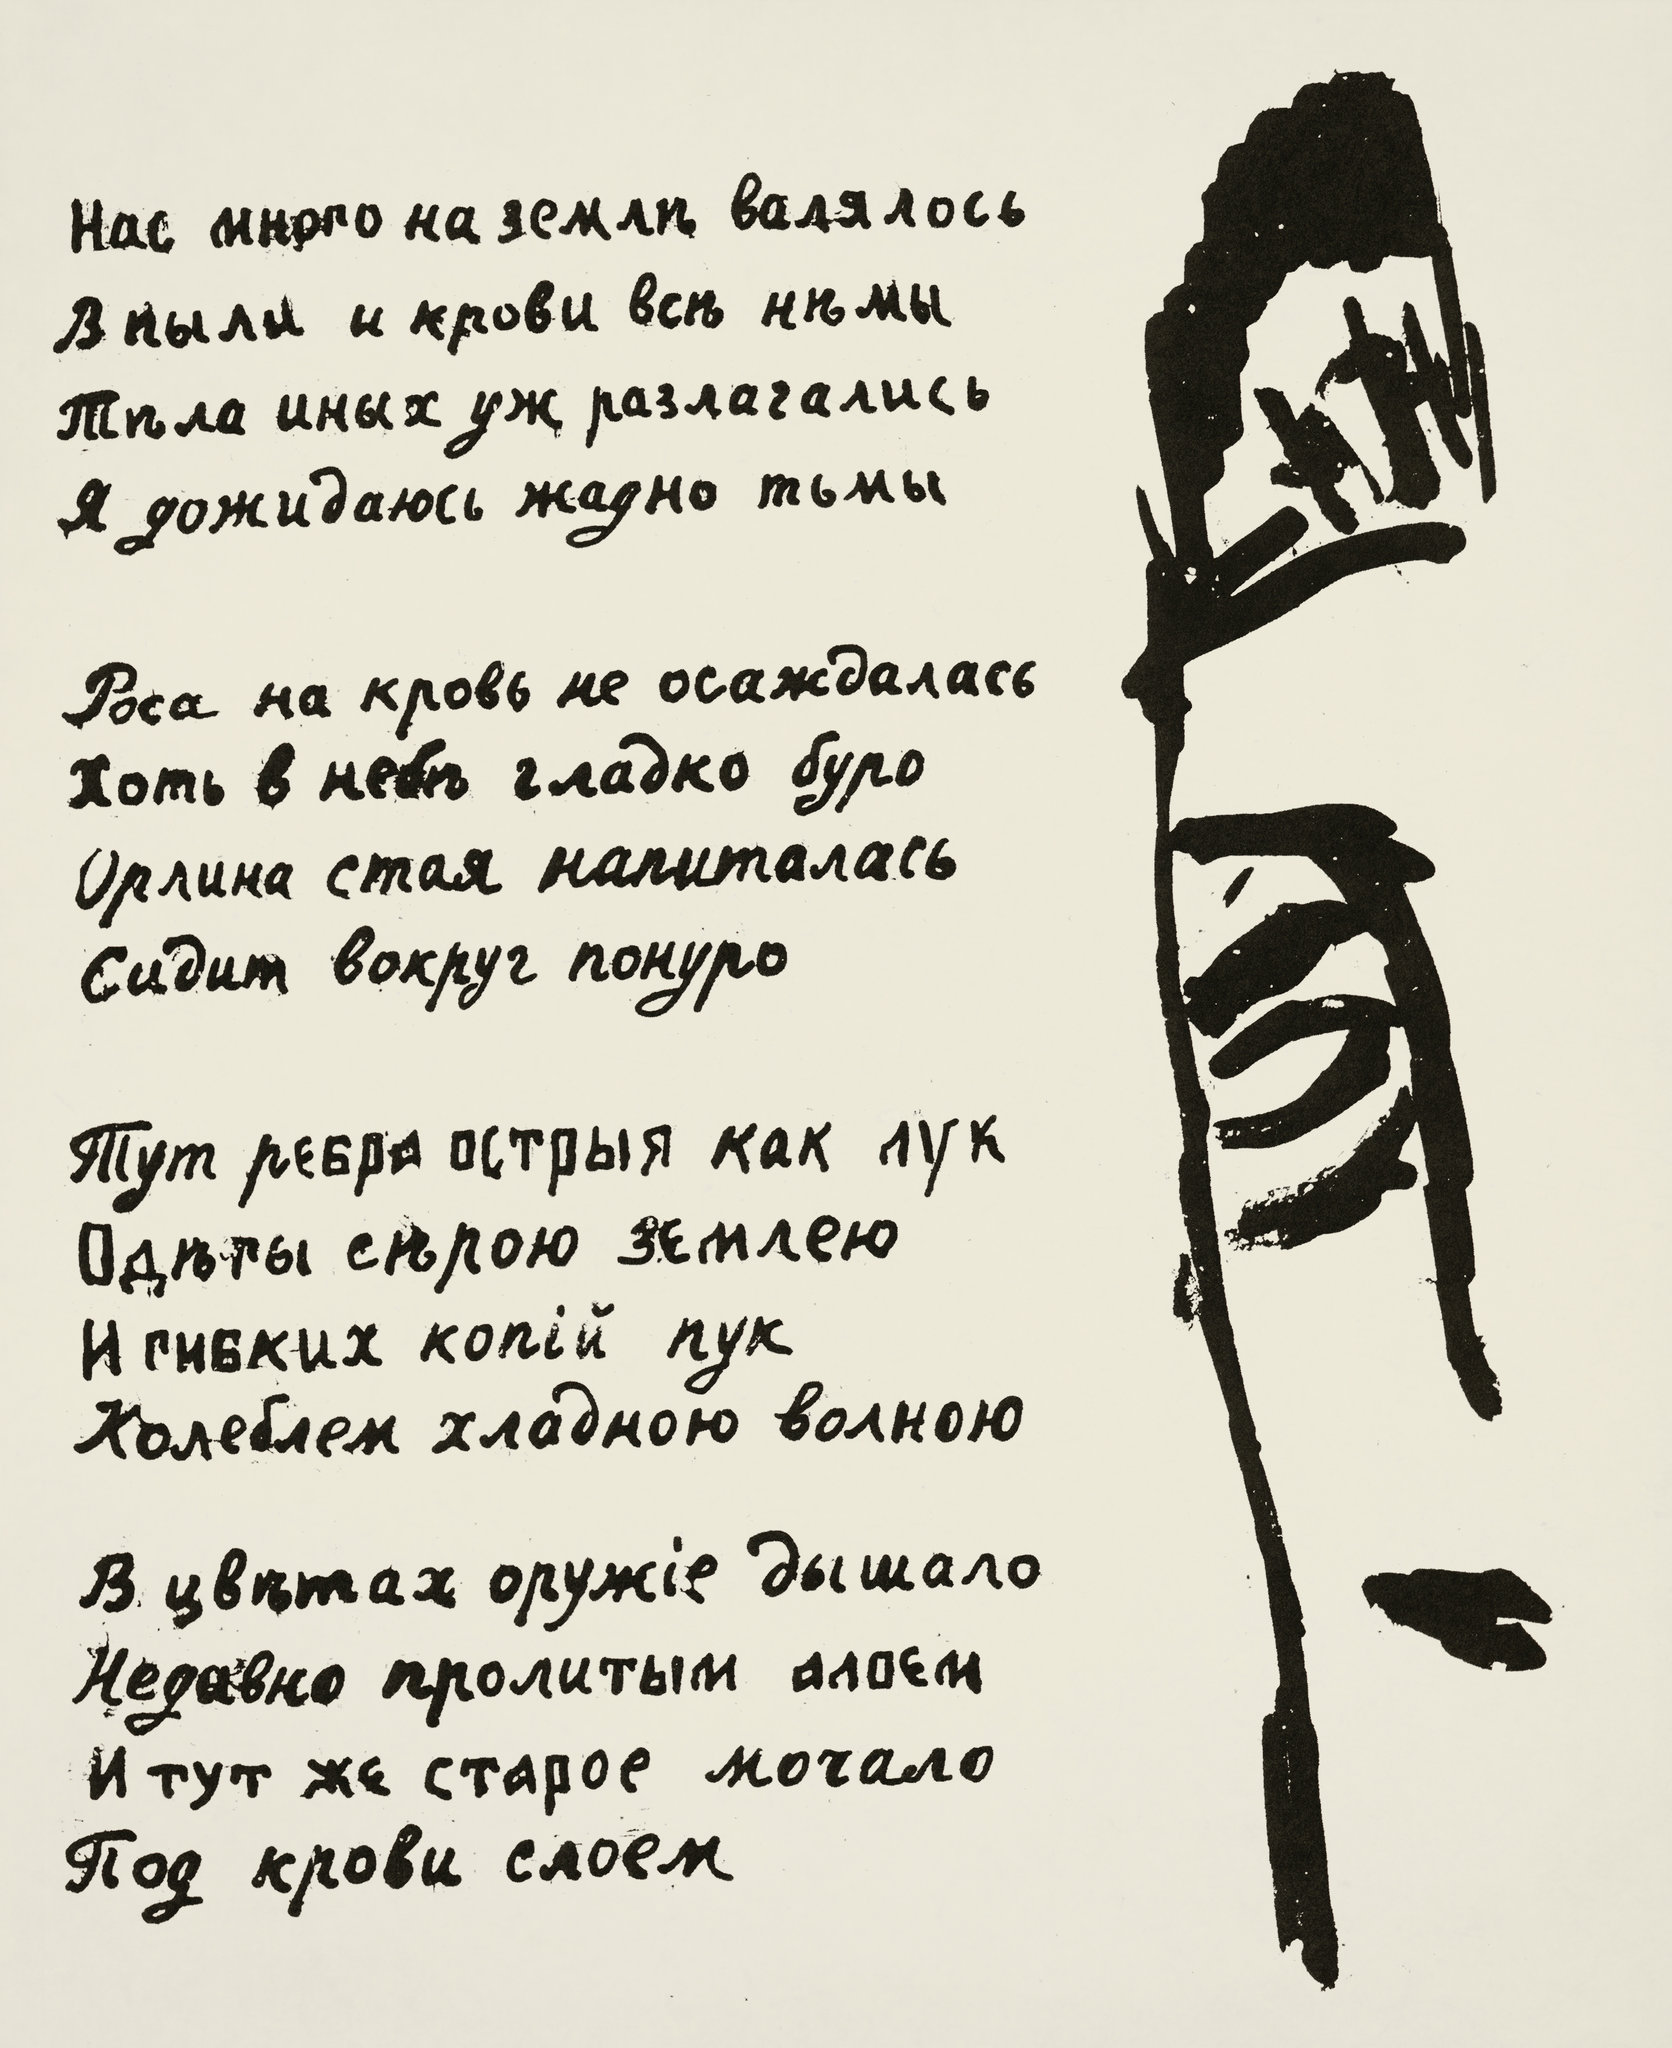 Нас много на землѣ валялось
В пыли и крови всѣ нѣмы
Тѣла иных уж разлагались
Я дожидаюсь жадно тьмы
Роса на кровь не осаждалась
Хоть в небѣ гладко буро
Орлина стая напиталась
Сидит вокруг понуро
Тут ребра острыя как лук
Одѣты сѣрою землею
И гибких копій пук
Колеблем хладною волною
В цвѣтах оружіе дышало
Недавно пролитым алоем
И тут же старое мочало
Под крови слоем